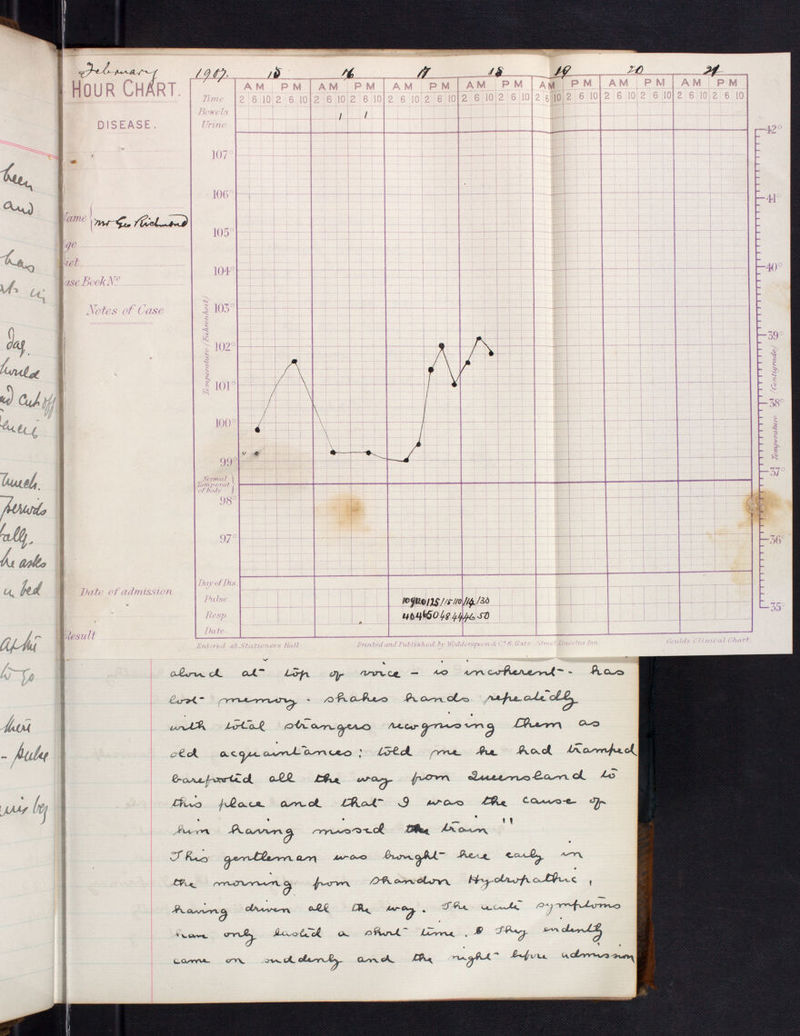 been
and
has
day.
should
and cut off
lunch.
periods
he asks
in bed
to go
there
- pulse
February 1907. 15 16 17 18 19 20 21
HOUR CHART.
AM PM AM PM AM PM AM PM AM PM AM PM AM PM
Time 2 6 10 2 6 10 2 6 10 2 6 10 2 6 10 2 6 10 2 6 10 2 6 10 2 6 10 2 6 10 2 6 10 2 6 10 2 6 10 2 6 10
Bowels 1 1
Urine
DISEASE.
107°
106°
105°
104°
103°
102°
101°
100°
99°
98°
97°
Temperature (Fahrenheit)
Normal Temperat. of body
42°
41°
40°
39°
38°
37°
36°
35°
Temperature (Centigrade)
Name Mr Geo Richmond
ge
iet
ase Book No
Notes of Case
Date of admission
Result
Day of Dis.
Pulse
Resp.
Date
Entered at Stationers Hall
Printed and Published by Wodderspoon & Co 6, Gate Street Lincolns Inn
Goulds Clinical Chart
aloud at top of voice - is incoherent - has
lost memory - shakes hands repeatedly
with total strangers recognising them as
old acquaintances; told me he had tramped
barefooted all the way from Queensland to
this place and that I was the cause of
him having missed the train "
This gentleman was brought here early in
the morning from Shandon Hydropathic,
having driven all the way. The acute symptoms
have only lasted a short time. They evidently
came on suddenly and the night before admission